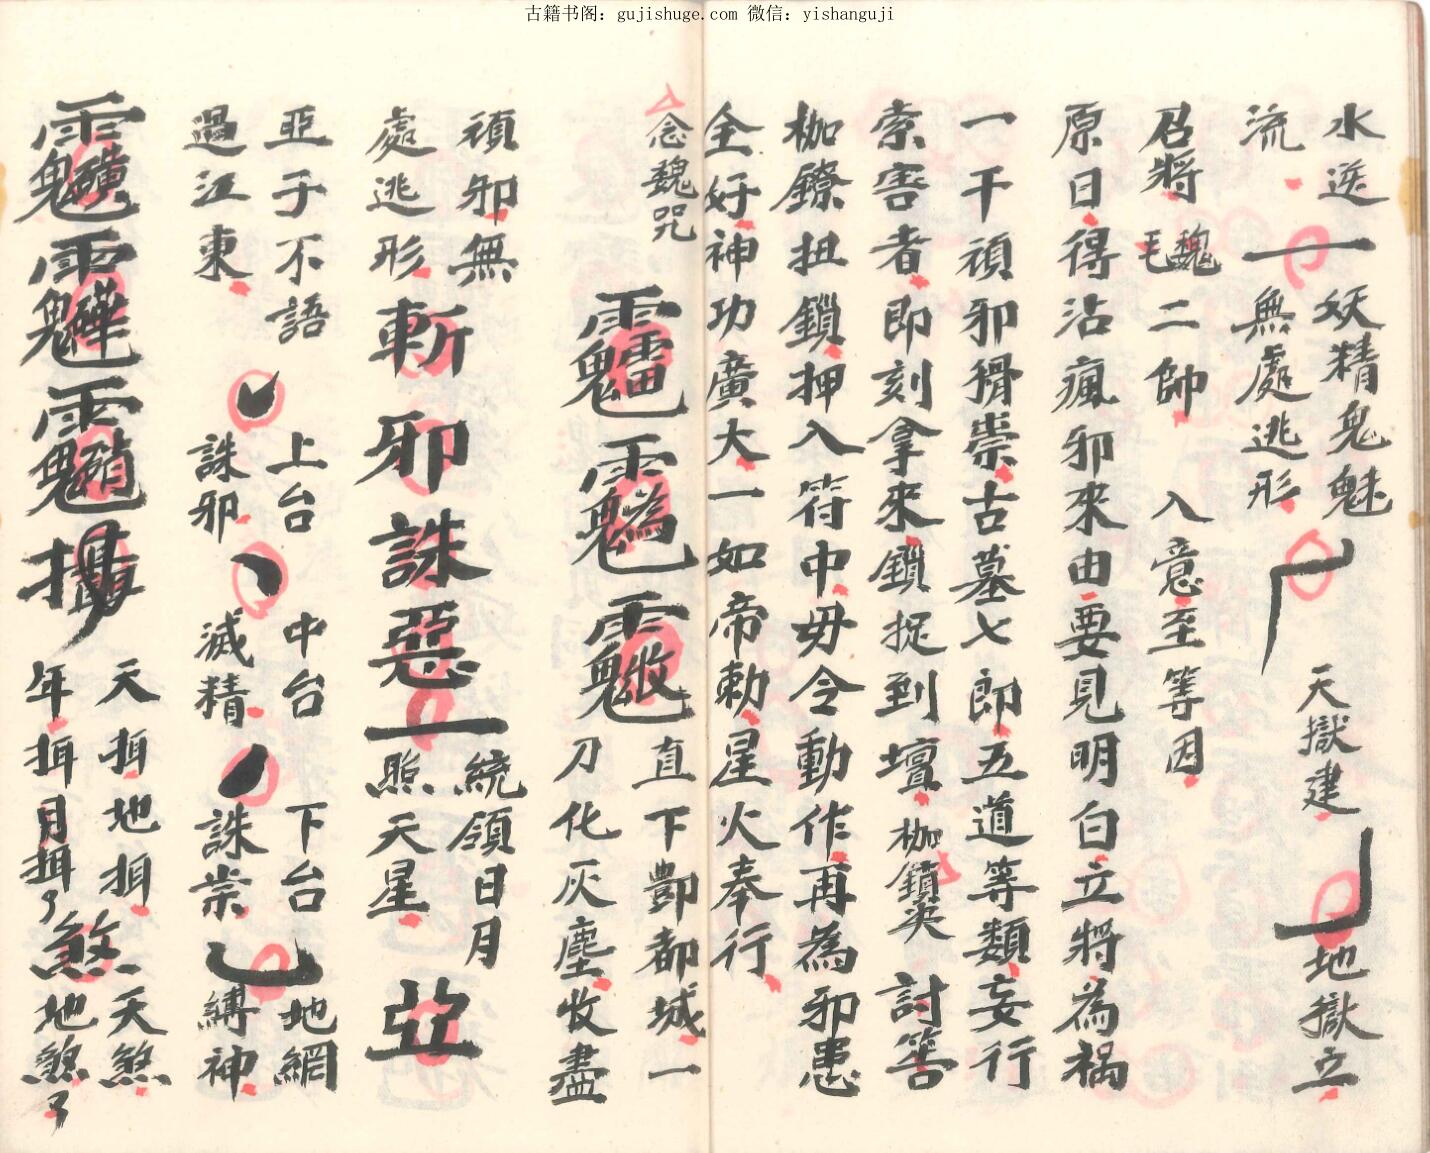 古籍书阁：gujishuge.com 微信：yishanguji
水送
流
一
妖精鬼魅
無處逃形
天獄建
地獄立
召將
魏
毛
二帥
入意至等因
原日得沾瘋邪來由要見明白立將為禍
一干頑邪猾祟古墓七郎五道等類妄行
索害者即刻拿來鎖捉到壇枷鎖英討筶
枷鐐扭鎖押入符中毋令動作再為邪患
全好神功廣大一如帝勅星火奉行
念魏咒
直下酆都城一
刀化灰塵收盡
頑邪無
處逃形
斬邪誅惡
統領日月
照天星
亞子不語
過江東
上台
誅邪
中台
滅精
下台
誅祟
地網
縛神
攝
天拑地拑
年拑月拑
煞
天煞
地煞